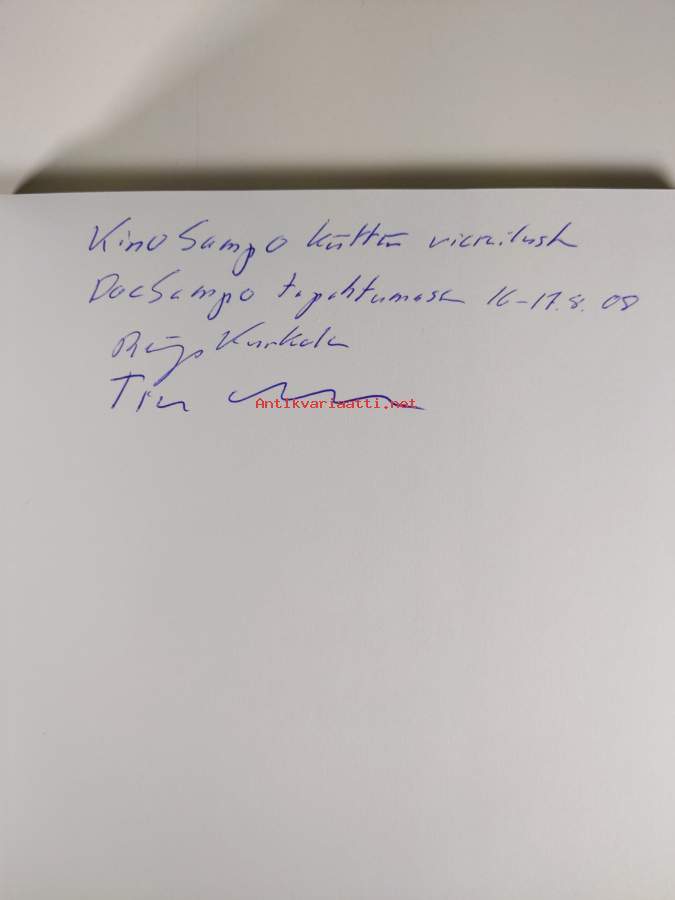 Kino Sampo kiittää vierailusta
DocSampo tapahtumassa 16-17.8.08
Kurkela
Antikvariaatti.net